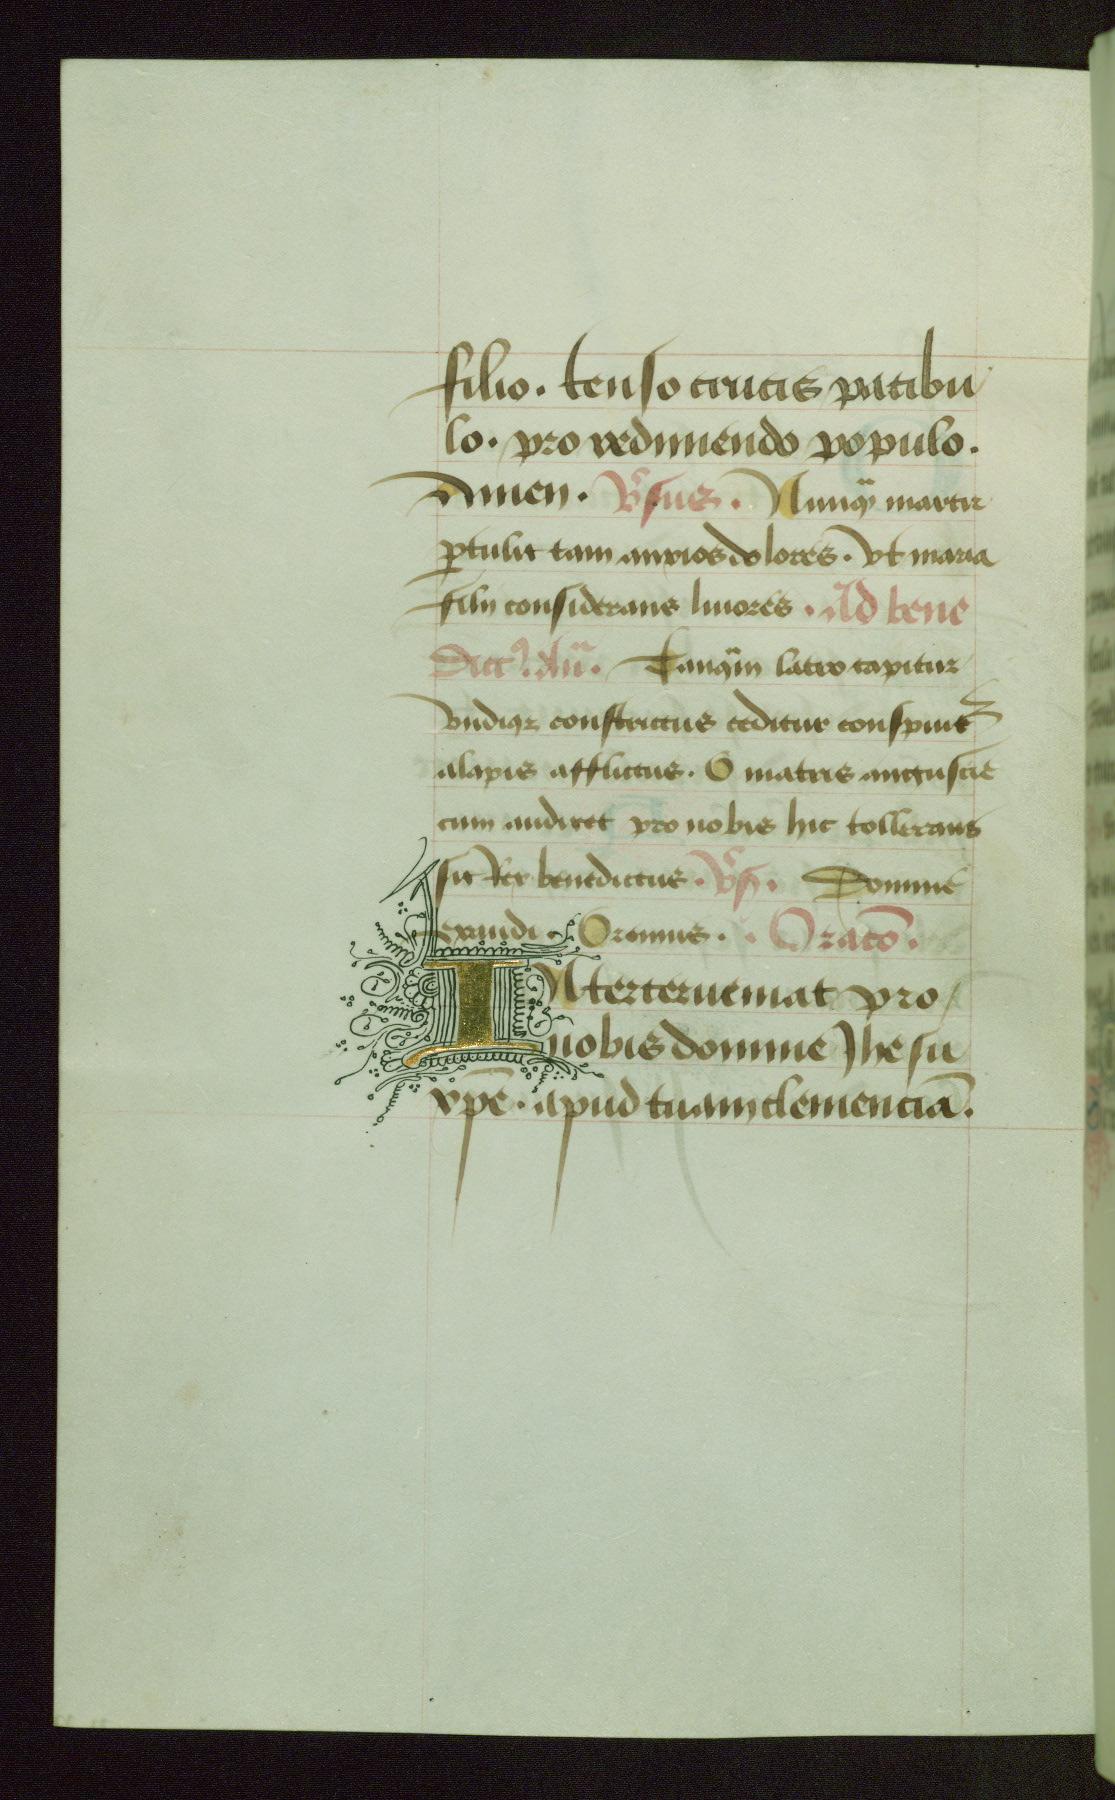 filio. tenso crucis patibu
lo. pro redimendo populo.
Amen. V̾sus. Nunq̄ martir
ꝑtulit tam anxios dolores. Vt maria
filij considerans liuores. Ad bene
dictꝰ. añ. Tanq̄m latro capitur
vndiqꝫ constrictus ceditur conspuitᷣ
alapis afflictus. O matris angustie
cum audiret pro nobis hic tollerans
sit Rex benedictus. V̾s. Domine
exaudi. Oremus. Oracō.
INterterueniat pro
nobis domine Jhesu
xp̄e. apud tuam clemenciā.